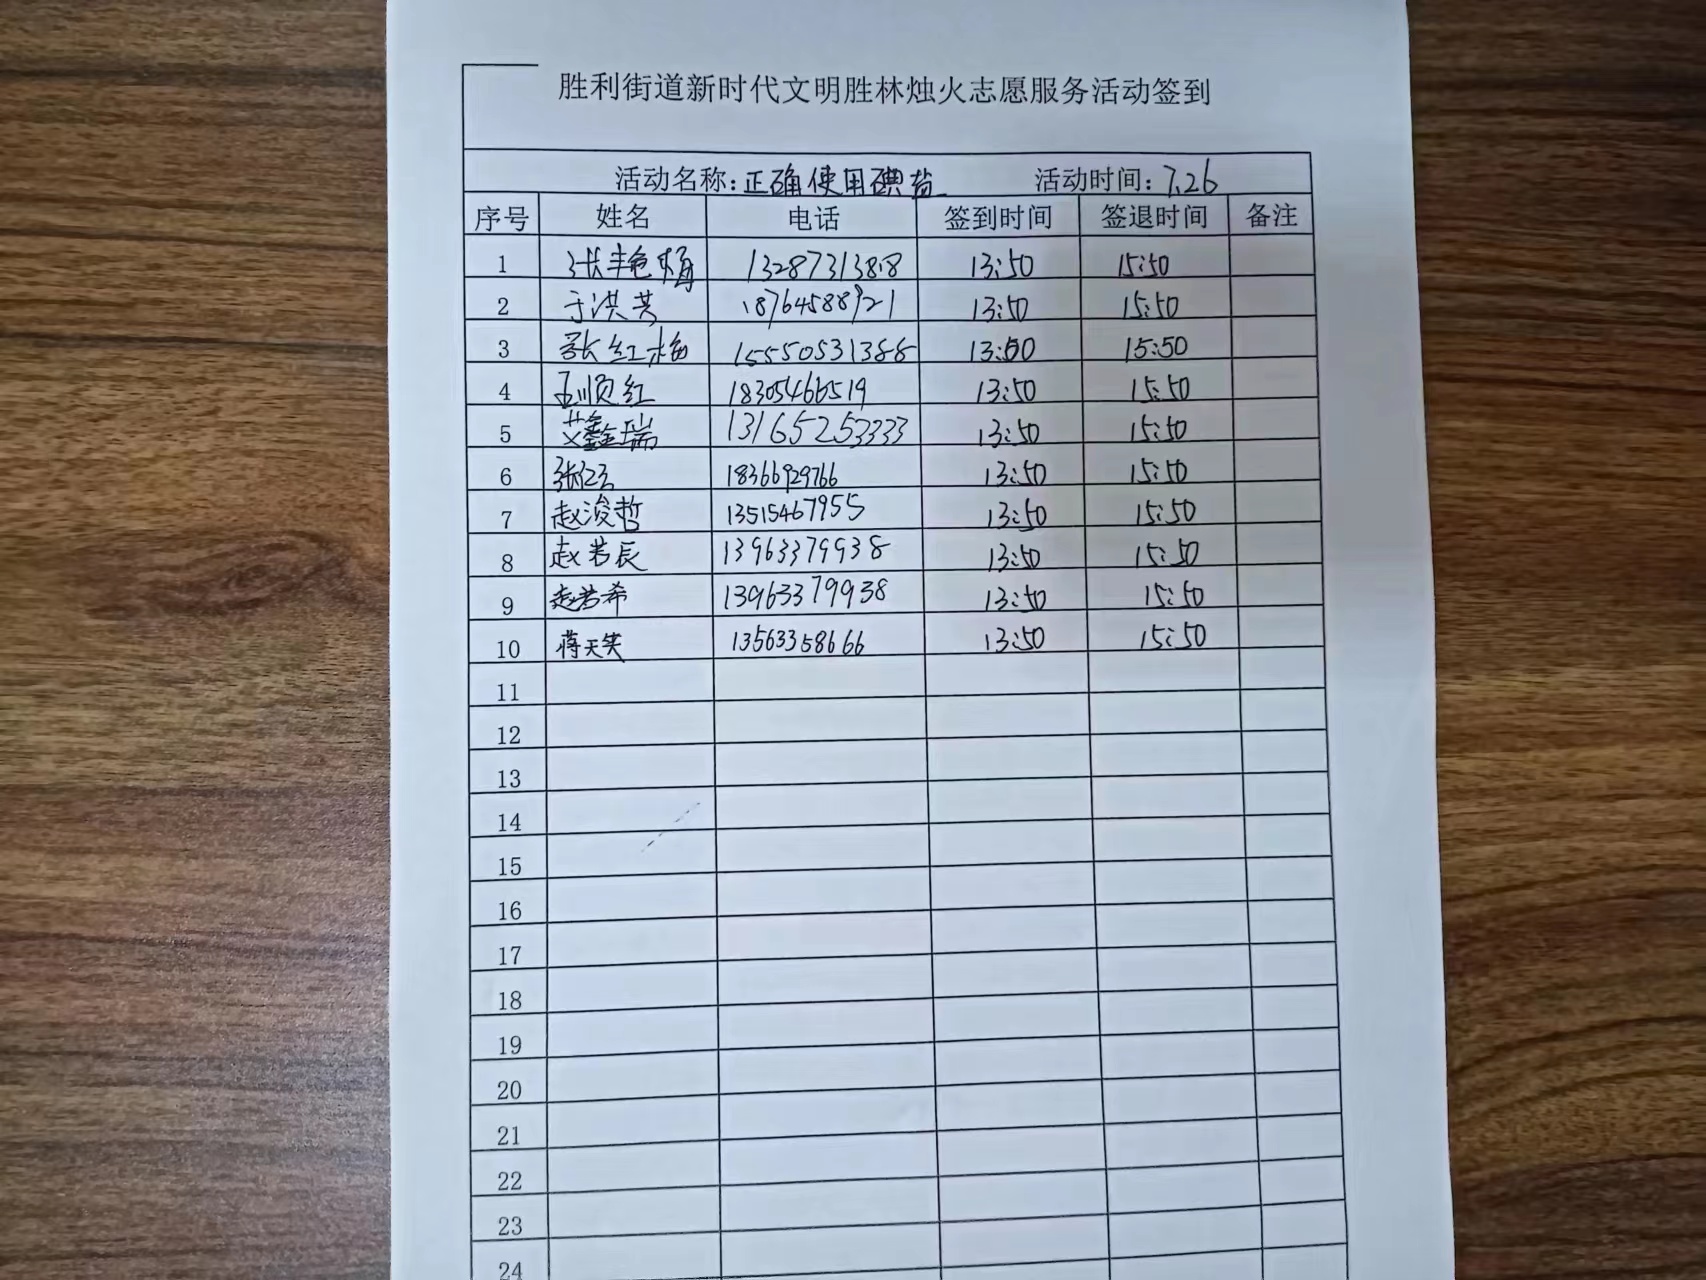 胜利街道新时代文明胜林烛火志愿服务活动签到
活动名称:正确使用碘盐 活动时间:7.26
序号 姓名 电话 签到时间 签退时间 备注
1 张艳梅 13287313818 13:50 15:50
2 于洪芬 18764588921 13:50 15:50
3 张红梅 15550531388 13:50 15:50
4 孟顺红 18305466519 13:50 15:50
5 艾鑫瑞 13165253333 13:50 15:50
6 18366929766 13:50 15:50
7 赵浚哲 13515467955 13:50 15:50
8 赵若辰 13963379938 13:50 15:50
9 赵若希 13963379938 13:50 15:50
10 蒋天笑 13563358666 13:50 15:50
11
12
13
14
15
16
17
18
19
20
21
22
23
24